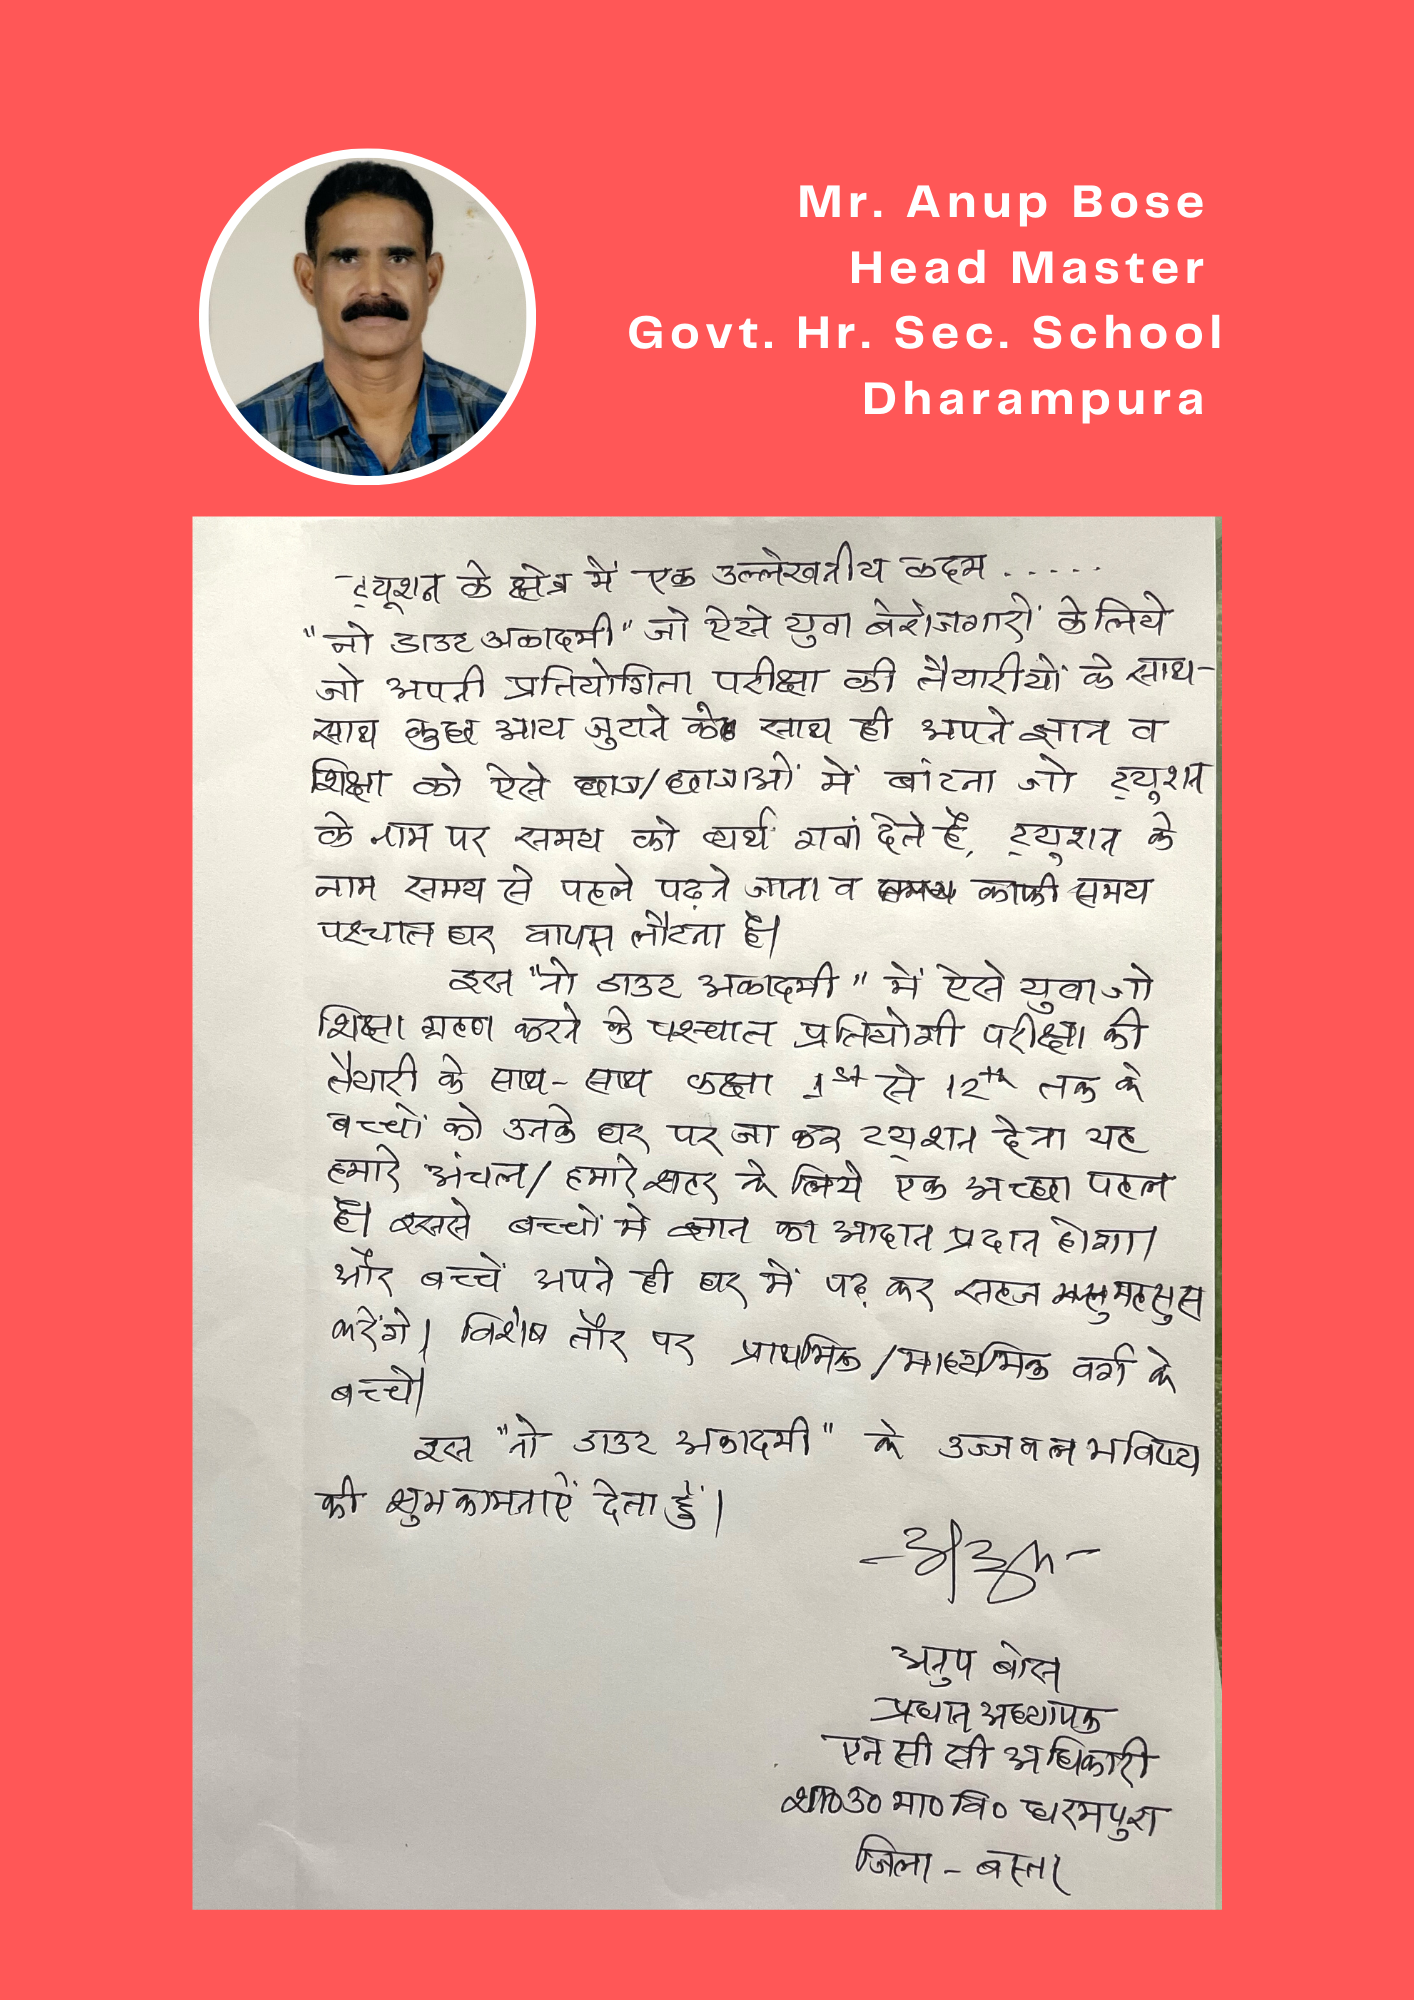 Mr. Anup Bose
Head Master
Govt. Hr. Sec. School
Dharampura
ट्यूशन के क्षेत्र में एक उल्लेखनीय कदम.....
"नो डाउट अकादमी" जो ऐसे युवा बेरोजगारों के लिये
जो अपनी प्रतियोगिता परीक्षा की तैयारीयों के साथ-
साथ कुछ आय जुटाने के साथ ही अपने ज्ञान व
शिक्षा को ऐसे छात्र/छात्राओं में बांटना जो ट्युशन
के नाम पर समय को व्यर्थ गवां देते हैं, ट्युशन के
नाम समय से पहले पढ़ने जाना व काफी समय
पश्चात घर वापस लौटना है।
इस "नो डाउट अकादमी" में ऐसे युवा जो
शिक्षा ग्रहण करने के पश्चात प्रतियोगी परीक्षा की
तैयारी के साथ-साथ कक्षा 1st से 12th तक के
बच्चों को उनके घर पर जा कर ट्युशन देना यह
हमारे अंचल/हमारे शहर के लिये एक अच्छा पहल
है। इससे बच्चों में ज्ञान का आदान प्रदान होगा।
और बच्चें अपने ही घर में पढ़ कर सहज महसुस
करेंगे। विशेष तौर पर प्राथमिक/माध्यमिक वर्ग के
बच्चे।
इस "नो डाउट अकादमी" के उज्जवल भविष्य
की शुभकामनाऐं देता हुं।
अनुप बोस
प्रधान अध्यापक
एन सी सी अधिकारी
शा०उ०मा०वि० धरमपुरा
जिला - बस्तर